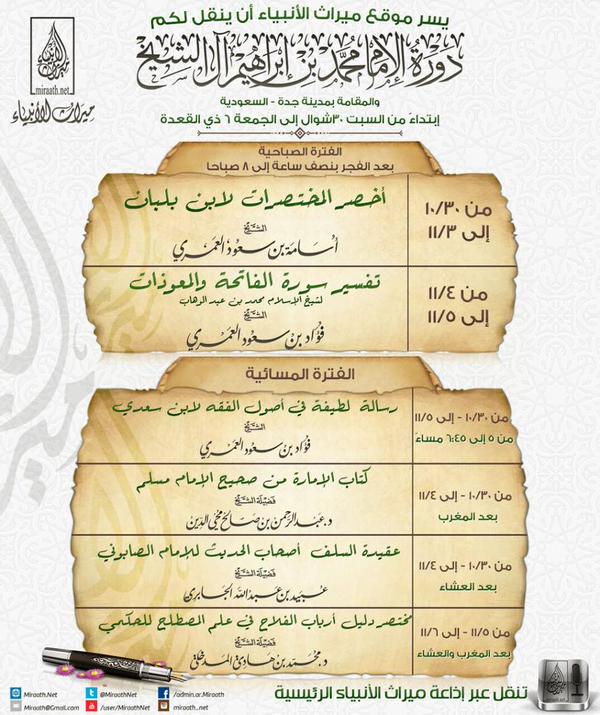 يسر موقع ميراث الأنبياء أن ينقل لكم
دورة الإمام محمد بن إبراهيم آل الشيخ
والمقامة بمدينة جدة - السعودية
إبتداءً من السبت ٣٠ شوال إلى الجمعة ٦ ذي القعدة
miraath.net
ميراث الأنبياء
الفترة الصباحية
بعد الفجر بنصف ساعة إلى ٨ صباحا
من ١٠/٣٠
إلى ١١/٣
أخصر المختصرات لابن بلبان
الشيخ
أسامة بن سعود العمري
من ١١/٤
إلى ١١/٥
تفسير سورة الفاتحة والمعوذات
لشيخ الإسلام محمد بن عبد الوهاب
الشيخ
فؤاد بن سعود العمري
الفترة المسائية
من ١٠/٣٠ - إلى ١١/٥
من ٥ إلى ٦:٤٥ مساءً
رسالة لطيفة في أصول الفقه لابن سعدي
الشيخ
فؤاد بن سعود العمري
من ١٠/٣٠ - إلى ١١/٤
بعد المغرب
كتاب الإمارة من صحيح الإمام مسلم
فضيلة الشيخ
د. عبد الرحمن بن صالح محي الدين
من ١٠/٣٠ - إلى ١١/٤
بعد العشاء
عقيدة السلف أصحاب الحديث للإمام الصابوني
فضيلة الشيخ
عبيد بن عبد الله الجابري
من ١١/٥ - إلى ١١/٦
بعد المغرب والعشاء
مختصر دليل أرباب الفلاح في علم المصطلح للحكمي
فضيلة الشيخ
د. محمد بن هادي المدخلي
تنقل عبر إذاعة ميراث الأنبياء الرئيسية
Miraath.Net
@MiraathNet
/admin.ar.Miraath
Miraath@Gmail.com
/user/MiraathNet
miraath_net